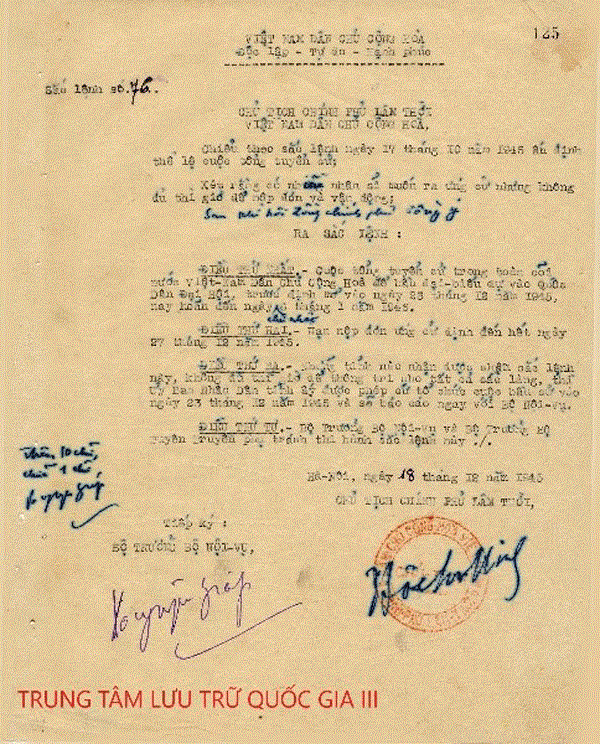 VIỆT NAM DÂN CHỦ CỘNG HÒA
125
Độc lập - Tự do - Hạnh phúc
Sắc lệnh số 76.
CHỦ TỊCH CHÍNH PHỦ LÂM THỜI
VIỆT NAM DÂN CHỦ CỘNG HOÀ,
Chiểu theo sắc lệnh ngày 17 tháng 10 năm 1945 ấn định
thể lệ cuộc tổng tuyển cử;
Xét rằng có nhiều nhân sĩ muốn ra ứng cử nhưng không
đủ thì giờ để nộp đơn và vận động;
Sau khi hội đồng chính phủ đồng ý
RA SẮC LỆNH :
ĐIỀU THỨ NHẤT.- Cuộc tổng tuyển cử trong toàn cõi
nước Việt-Nam Dân Chủ Cộng Hoà để bầu đại-biểu dự vào Quốc
Dân Đại Hội, trước định mở vào ngày 23 tháng 12 năm 1945,
nay hoãn đến ngày 6 tháng 1 năm 1946.
chủ nhật
ĐIỀU THỨ HAI.- Hạn nộp đơn ứng cử định đến hết ngày
27 tháng 12 năm 1945.
ĐIỀU THỨ BA.- Những tỉnh nào nhận được sắc lệnh
này, không đủ thì giờ để thông tri cho tất cả các làng, thì
Uỷ Ban Nhân Dân tỉnh ấy được phép cứ tổ chức cuộc bầu cử vào
ngày 23 tháng 12 năm 1945 và sẽ báo cáo ngay với Bộ Nội-Vụ.
ĐIỀU THỨ TƯ.- Bộ Trưởng Bộ Nội-Vụ và Bộ Trưởng Bộ
Tuyên Truyền phụ trách thi hành sắc lệnh này ./.
thêm 10 chữ,
chữa 1 chữ,
Võ nguyên Giáp
Hà-Nội, ngày 18 tháng 12 năm 1945
CHỦ TỊCH CHÍNH PHỦ LÂM THỜI,
Tiếp ký :
BỘ TRƯỞNG BỘ NỘI-VỤ,
Hồ Chí Minh
Võ nguyên Giáp
TRUNG TÂM LƯU TRỮ QUỐC GIA III